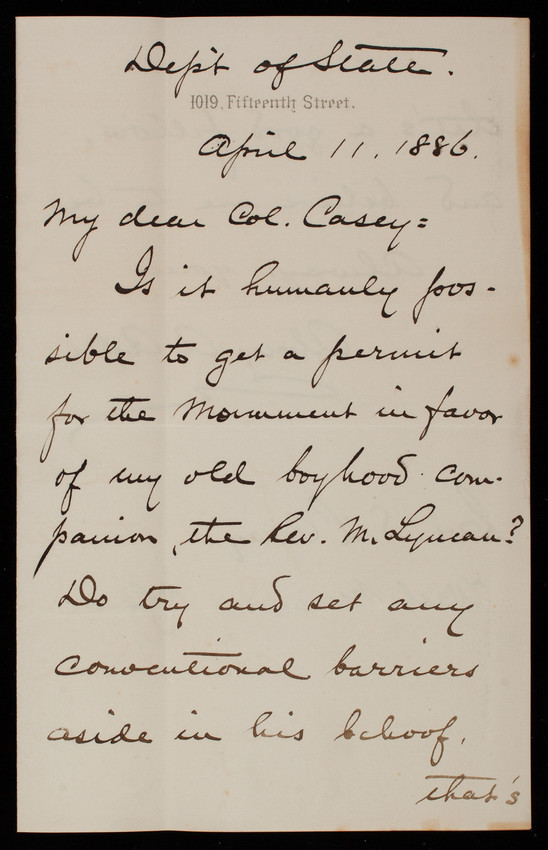 Dep't of State.
1019, Fifteenth Street.
April 11. 1886.
My dear Col. Casey:
Is it humanly pos-
sible to get a permit
for the Monument in favor
of my old boyhood com-
panion, the Rev. Mr. Lyman?
Do try and set any
conventional barriers
aside in his behoof,
that's